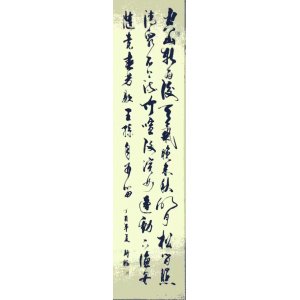 空山新雨後天氣晚來秋明月松間照
清泉石上流竹喧歸浣女蓮動下漁舟
隨意春芳歇王孫自可留